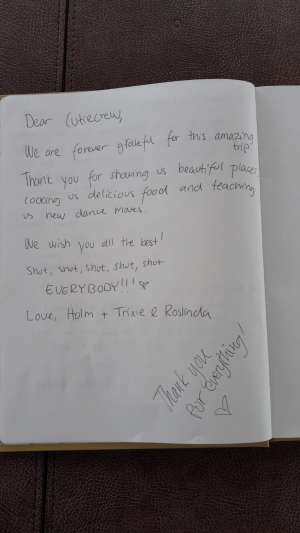 Dear Cutiecrew,
We are forever grateful for this amazing
trip
Thank you for showing us beautiful places
cooking us delicious food and teaching
us new dance moves.
We wish you all the best!
Shot, shot, shot, shot, shot
EVERYBODY!!! ♡
Love, Holm + Trixie & Roslinda
Thank you
For Everything!
♡